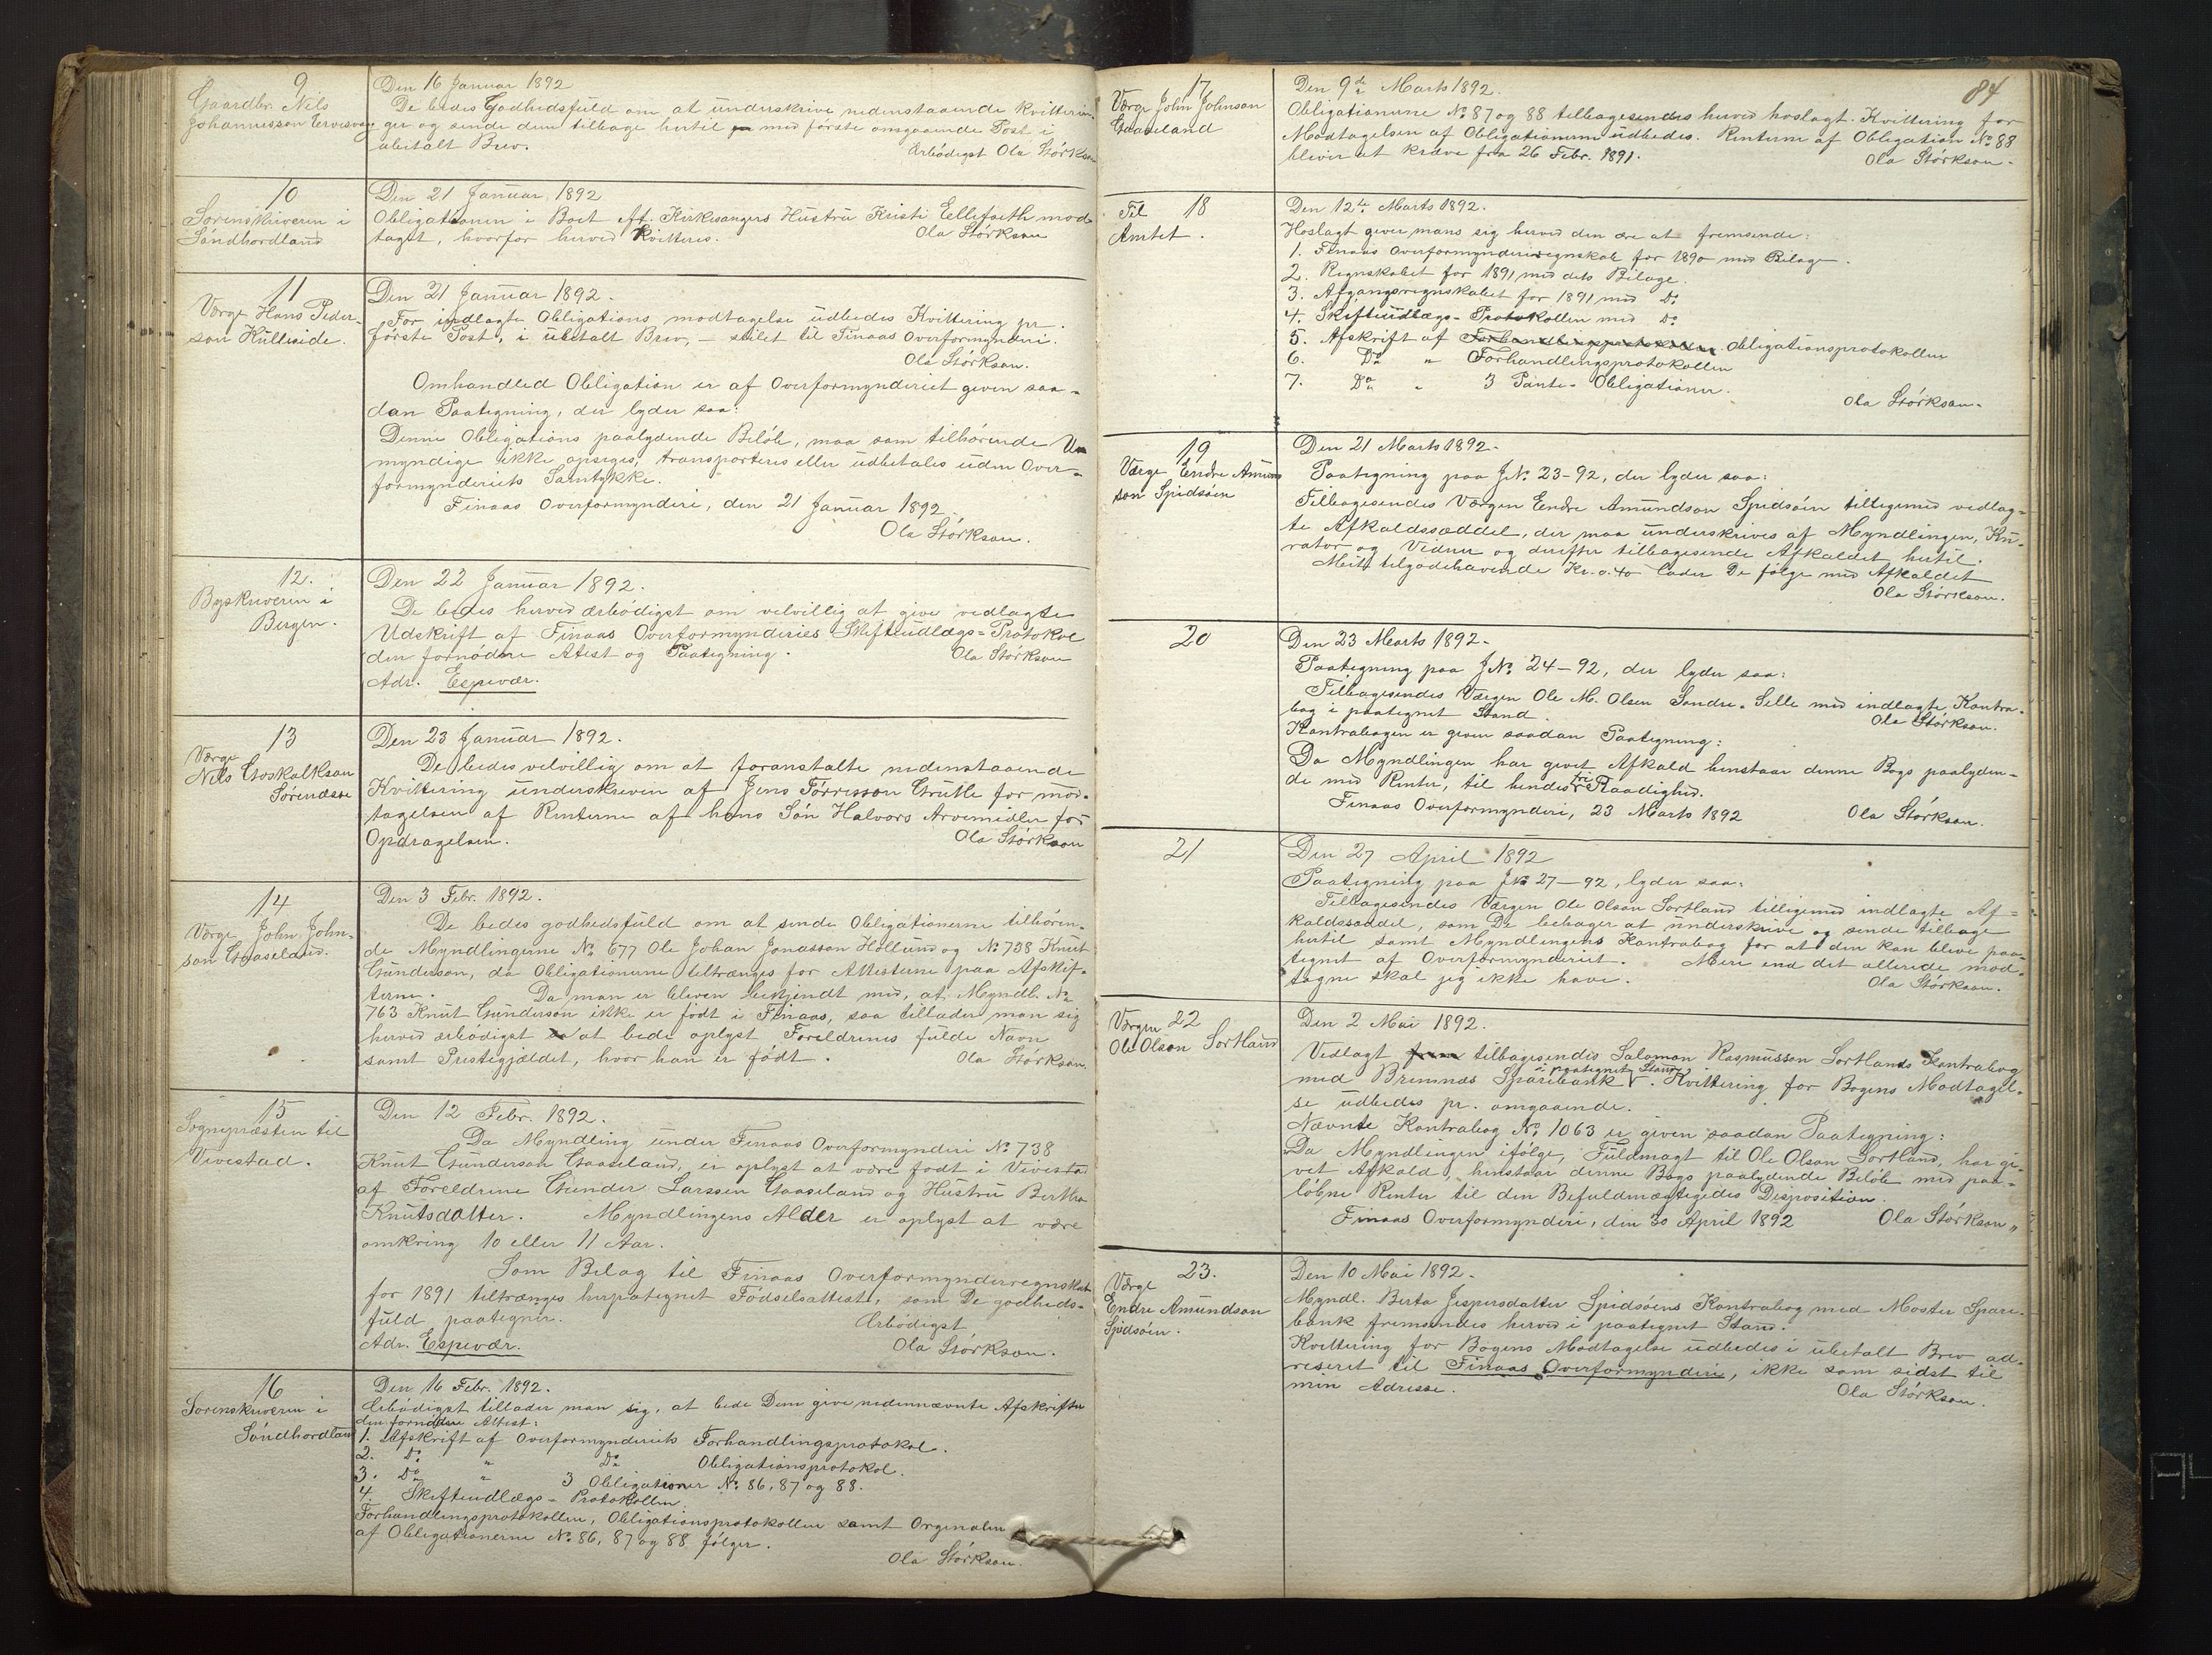 9
Gaardbr. Nils
Johannesson Tervesvaag
Den 16 Januar 1892
De bedes Godhedsfuld om at underskrive nedenstaaende Kvitterin-
ger og sende dem tilbage hertil med første omgaaende Post i
ubetalt Brev.
Ærbødigst Ola Størkson
10
Sorenskriveren i
Søndhordland
Den 21 Januar 1892
Obligationen i Boet Aff. Kirkesangers Hustru Kristi Ellefseth mod-
taget, hvorfor herved kvitteres.
Ola Størkson
11
Værge Hans Peder-
son Kulleside.
Den 21 Januar 1892.
For indlagte Obligations modtagelse udbedes Kvittering pr.
første Post, i ubetalt Brev, – stilet til Finaas Overformynderi.
Ola Størkson.
Omhandled Obligation er af Overformynderiet given saa-
dan Paategning, der lyder saa:
Denne Obligations paalydende Beløb, maa som tilhørende Um
myndige ikke opsiges, transporteres eller udbetales uden Over-
formynderiets Samtykke.
Finaas Overformynderi, den 21 Januar 1892
Ola Størkson.
12.
Byskriveren i
Bergen.
Den 22 Januar 1892.
De bedes herved ærbødigst om velvillig at give vedlagte
Udskrift af Finaas Overformynderies Skifteudlægs-Protokol
den fornødne Atest og Paategning.
Ola Størkson
Adr. Espevær.
13
Værge
Nils Goskalkson
Sørenæsse
Den 23 Januar 1892.
De bedes velvillig om at foranstalte nedenstaaende
Kvittering underskreven af Jens Tørresson Grutle for mod-
tagelsen af Renterne af hans Søn Halvors Arvemidler for
Opdragelsen.
Ola Størkson
14
Værge John John-
son Gaaseland.
Den 3 Febr. 1892.
De bedes godhedsfuld om at sende Obligationerne tilhøren-
de Myndlingerne No 677 Ole Johan Jonasson Høllund og No 738 Knut
Gunderson, da Obligationerne tiltrænges for Attesterne paa Afskif-
terne. Da man er bleven bekjendt med, at Myndl. No
763 Knut Gunderson ikke er født i Finaas, saa tillader man sig
herved ærbødigst at bede oplyst Foreldrenes fulde Navn
samt Prestegjældet, hvor han er født.
Ola Størkson.
15
Sognepræsten til
Vivestad.
Den 12 Febr. 1892.
Da Myndling under Finaas Overformynderi No 738
Knut Gunderson Gaaseland, er oplyst at være født i Vivestad
af Foreldrene Gunder Larssen Gaaseland og Hustru Bertha
Knutsdatter. Myndlingens Alder er oplyst at være
omkring 10 eller 11 Aar.
Som Bilag til Finaas Overformynderregnskab
for 1891 tiltrænges herpategnet Fødselsattest, som De godheds-
fuld paategner.
Ærbødigst
Adr. Espevær.
Ola Størkson.
16
Sorenskriveren i
Søndhordland
Den 16 Febr. 1892.
Ærbødigst tillader man sig, at bede Dem give nedennævnte Afskrifter
den fornødne Attest:
1. Afskrift af Overformynderiets Forhandlingsprotokol.
2. Do " Do Obligationsprotokol.
3. Do " 3 Obligationer No 86, 87 og 88.
4. Skifteudlægs-Protokollen
Forhandlingsprotokollen, Obligationsprotokollen samt Orginalen
af Obligationerne No 86, 87 og 88 følger.
Ola Størkson.
84
17
Værge John Johnson
Gaaseland
Den 9de Marts 1892.
Obligationerne No 87 og 88 tilbagesendes herved hoslagt. Kvittering for
Modtagelsen af Obligationerne udbedes. Renterne af Obligation No 88
bliver at kræve fra 26 Febr. 1891.
Ola Størkson.
Til 18
Amtet.
Den 12te Marts 1892.
Hoslagt giver mans sig herved den ære at fremsende:
1. Finaas Overformynderiregnskab for 1890 med Bilage.
2. Regnskabet for 1891 med dets Bilage.
3. Afgangsregnskabet for 1891 med Do
4. Skifteudlægs-Protokollen med Do
5. Afskrift af Forhandlingsprotokollen Obligationsprotokollen
6. Do " Forhandlingsprotokollen
7. Do " 3 Pante-Obligationer.
Ola Størkson.
19
Værge Endre Amund
son Spidsøen
Den 21 Marts 1892.
Paategning paa JNo 23-92, der lyder saa:
Tilbagesendes Værgen Endre Amundson Spidsøen tilligemed vedlag-
te Afkaldssæddel, der maa underskrives af Myndlingen, Ku-
rator og Vidner og derefter tilbagesende Afkaldet hertil.
Meit tilgodehavende Kr. 0.40 lader De følge med Afkaldet
Ola Størkson.
20
Den 23 Marts 1892.
Paategning paa JNo 24-92, der lyder saa:
Tilbagesendes Værgen Ole M. Olsen Søndre-Selle med indlagte Kontra-
bog i paategnet Stand.
Ola Størkson.
Kontrabogen er given saadan Paategning:
Da Myndlingen har givet Afkald henstaar denne Bogs paalyden-
de med Renter, til hendes fri Raadighed.
Finaas Overformynderi, 23 Marts 1892
Ola Størkson.
21
Den 27 April 1892
Paategning paa JNo 27-92, lyder saa:
Tilbagesendes Værgen Ole Olson Sortland tilligemed indlagte Af-
kaldssæddel, som De behager at underskrive og sende tilbage
hertil samt Myndlingens Kontrabog for at den kan blive paa-
tegnet af Overformynderiet. Mere end det allerede mod-
tagne skal jeg ikke have.
Ola Størkson.
Værgen 22
Ole Olson Sortland
Den 2 Mai 1892.
Vedlagt frem tilbagesendes Salomon Rasmusson Sortlands Kontrabog
med Bremnæs Sparebank i paategnet Stand. Kvittering for Bogens Modtagel-
se udbedes pr. omgaaende.
Nævnte Kontrabog No 1063 er given saadan Paategning:
Da Myndlingen ifølge, Fuldmagt til Ole Olson Sortland, har gi-
vet Afkald, henstaar denne Bogs paalydende Beløb med paa-
løbne Renter til den Befuldmægtigedes Disposition.
Finaas Overformynderi, den 30 April 1892
Ola Størkson "
23.
Værge
Endre Amundson
Spidsøen.
Den 10 Mai 1892.
Myndl. Berta Jespersdatter Spidsøens Kontrabog med Moster Spare-
bank fremsendes herved i paategnet Stand.
Kvittering for Bogens Modtagelse udbedes i ubetalt Brev ad-
reseret til Finaas Overformynderi, ikke som sidst til
min Adresse.
Ola Størkson.